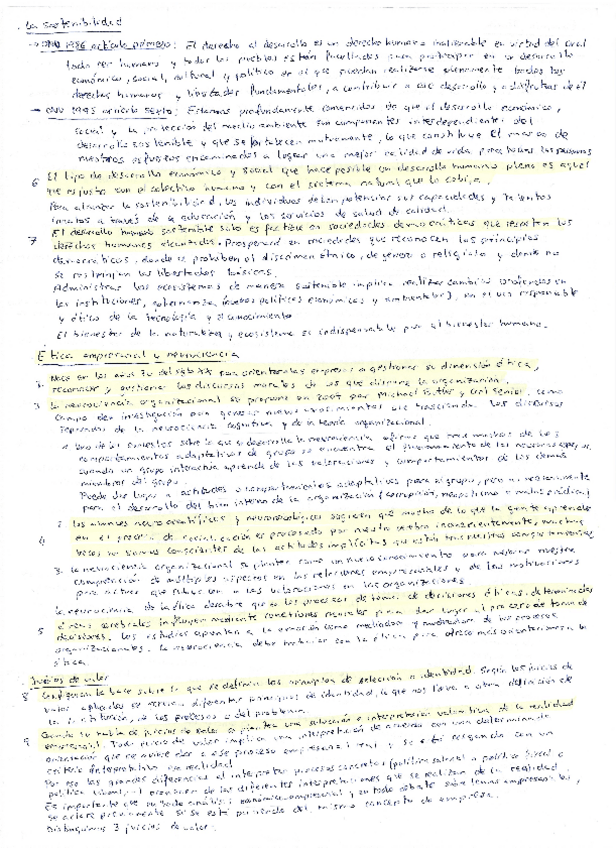 La sostenibilidad
→ ONU 1986 artículo primero: El derecho al desarrollo es un derecho humano inalienable en virtud del cual
todo ser humano y todos los pueblos están facultados para participar en un desarrollo
económico, social, cultural y político en el que puedan realizarse plenamente todos los
derechos humanos y libertades fundamentales, a contribuir a ese desarrollo y a disfrutar de él
→ ONU 1995 artículo sexto: Estamos profundamente convencidos de que el desarrollo económico,
social y la protección del medio ambiente son componentes interdependientes del
desarrollo sostenible y que se fortalecen mutuamente, lo que constituye el marco de
nuestros esfuerzos encaminados a lograr una mejor calidad de vida para todas las personas
6 El tipo de desarrollo económico y social que hace posible un desarrollo humano pleno es aquel
que es justo con el colectivo humano y con el sistema natural que lo cobija.
Para alcanzar la sostenibilidad, los individuos deben potenciar sus capacidades y talentos
innatos a través de la educación y los servicios de salud de calidad.
7 El desarrollo humano sostenible solo es factible en sociedades democráticas que respeten los
derechos humanos elementales. Prosperará en sociedades que reconocen los principios
democráticos, donde se prohíben el discrimen étnico, de género o religioso y donde no
se restrinjan las libertades básicas.
Administrar los ecosistemas de manera sostenible implica realizar cambios profundos en
las instituciones, gobernanza (nuevas políticas económicas y ambientales), en el uso responsable
y ético de la tecnología y el conocimiento
El bienestar de la naturaleza y ecosistema es indispensable para el bienestar humano.
Ética empresarial y neurociencia
Nace en los años 70 del siglo XX para orientar a las empresas a gestionar su dimensión ética,
reconocer y gestionar los discursos morales de los que dispone la organización.
3 La neurociencia organizacional se propone en 2007 por Michael Butler y Carl Senior, como
campo de investigación para generar nuevos conocimientos que trasciendan los discursos
separados de la neurociencia cognitiva y de la teoría organizacional.
comportamientos adaptativos de grupo se encuentra el funcionamiento de las neuronas espejo,
cuando un grupo interactúa aprende de las valoraciones y comportamientos de los demás
miembros del grupo.
Puede dar lugar a actitudes o comportamientos adaptativos para el grupo, pero no necesariamente
para el desarrollo del bien interno de la organización (corrupción, nepotismo o malas prácticas)
4
en el proceso de socialización es procesado por nuestro cerebro inconscientemente, muchas
veces no somos conscientes de las actitudes implícitas que están tras nuestros comportamientos
3. La neurociencia organizacional se plantea como un nuevo conocimiento para mejorar nuestra
comprensión de múltiples aspectos en las relaciones empresariales y de las motivaciones
para actuar que subyacen a las valoraciones en las organizaciones.
La neurociencia de la ética descubre que en los procesos de toma de decisiones éticas, determinadas
5 áreas cerebrales influyen mediante conexiones neuronales para dar lugar al proceso de toma de
decisiones. Los estudios apuntan a la emoción como mediador y motivador de los procesos
organizacionales. La neurociencia debe trabajar con la ética para ofrecer más orientaciones a la
ética.
Juicios de valor
8 Configuran la base sobre la que se definirán los principios de selección o identidad. Según los juicios de
valor aplicados se tendrán diferentes principios de identidad, lo que nos lleva a otra definición de
la institución, de los procesos o del problema.
9 Cuando se habla de juicios de valor se plantea una valoración o interpretación valorativa de la realidad
empresarial. Todo juicio de valor implica una interpretación de acuerdo con una determinada
criterio interpretativo de realidad
Por eso las grandes diferencias al interpretar procesos concretos (política salarial o política fiscal o
política laboral...) provienen de las diferentes interpretaciones que se realizan de la realidad.
Es importante que en todo análisis económico-empresarial y en todo debate sobre temas empresariales,
se aclare previamente si se está partiendo del mismo concepto de empresa.
Distinguimos 3 juicios de valor: